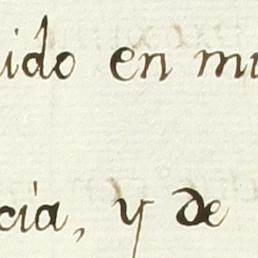 ido en mu
cia, y de